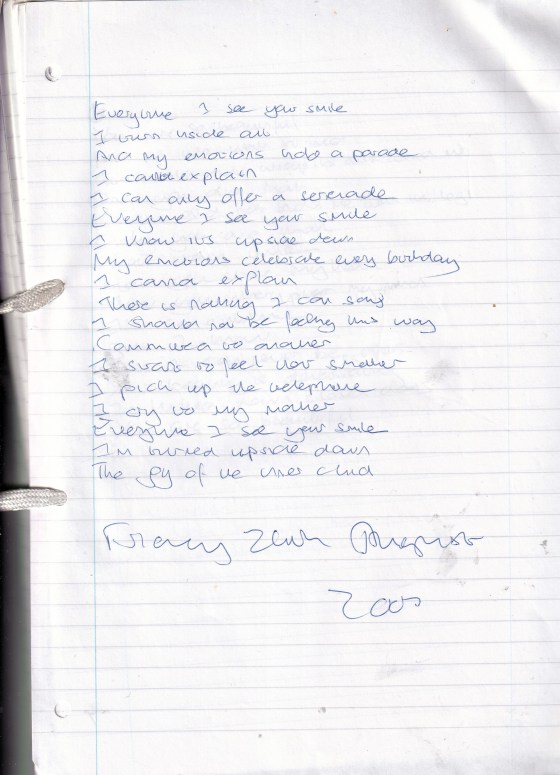 Everytime I see your smile
I turn inside out
And my emotions hold a parade
I cannot explain
I can only offer a serenade
Everytime I see your smile
I know its upside down
My emotions celebrate every birthday
I cannot explain
There is nothing I can say
I should not be feeling this way
Committed to another
I start to feel smaller
I pick up the telephone
I cry to my mother
Everytime I see your smile
I'm turned upside down
The joy of the inner child
Friday 26th August
2005